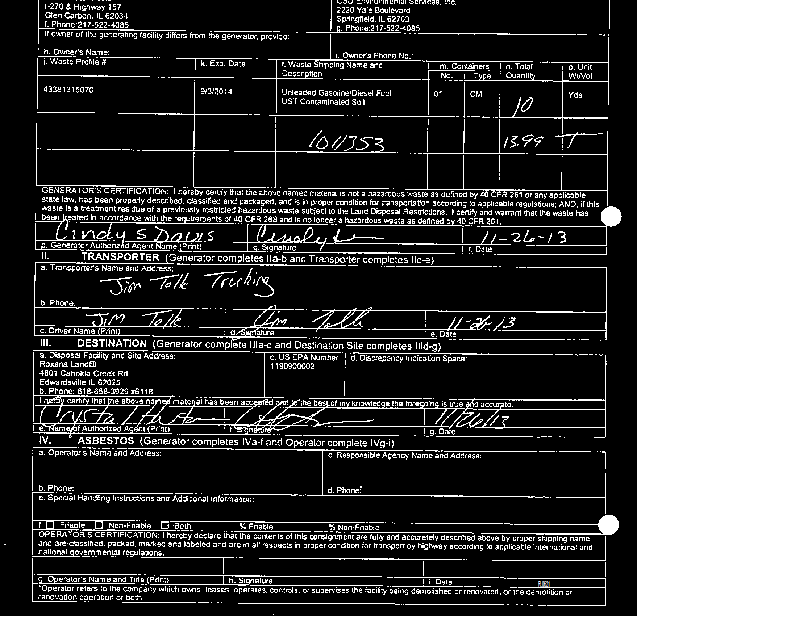 I-270 & Highway 157
Glen Carbon, IL 62034
f. Phone: 217-522-4085
CSD Environmental Services, Inc.
2220 Yale Boulevard
Springfield, IL 62703
g. Phone: 217-522-4085
If owner of the generating facility differs from the generator, provide:
h. Owner's Name:
i. Owner's Phone No.:
j. Waste Profile #
k. Exp. Date
l. Waste Shipping Name and Description
m. Containers
No.
Type
n. Total Quantity
o. Unit Wt/Vol
9/3/2014
Unleaded Gasoline/Diesel Fuel
UST Contaminated Soil
CM
10
Yds
1011353
13.99
T
GENERATOR'S CERTIFICATION: I hereby certify that the above named material is not a hazardous waste as defined by 40 CFR 261 or any applicable
state law, has been properly described, classified and packaged, and is in proper condition for transportation according to applicable regulations; AND, if this
waste is a treatment residue of a previously restricted hazardous waste subject to the Land Disposal Restrictions, I certify and warrant that the waste has
been treated in accordance with the requirements of 40 CFR 268 and is no longer a hazardous waste as defined by 40 CFR 261.
Cindy S Davis
11-26-13
p. Generator Authorized Agent Name (Print)
q. Signature
r. Date
II. TRANSPORTER (Generator completes IIa-b and Transporter completes IIc-e)
a. Transporter's Name and Address:
Jim Talk Trucking
b. Phone:
Jim Talk
Jim Talk
11-26-13
c. Driver Name (Print)
d. Signature
e. Date
III. DESTINATION (Generator complete IIIa-c and Destination Site completes IIId-g)
a. Disposal Facility and Site Address:
Roxana Landfill
4601 Cahokia Creek Rd
Edwardsville IL 62025
b. Phone: 618-656-3929 x6118
c. US EPA Number
1190900002
d. Discrepancy Indication Space:
I hereby certify that the above named material has been accepted and to the best of my knowledge the foregoing is true and accurate.
11/26/13
e. Name of Authorized Agent (Print)
f. Signature
g. Date
IV. ASBESTOS (Generator completes IVa-f and Operator complete IVg-i)
a. Operator's Name and Address:
c. Responsible Agency Name and Address:
b. Phone:
d. Phone:
e. Special Handling Instructions and Additional Information:
f. Friable Non-Friable Both % Friable % Non-Friable
OPERATOR'S CERTIFICATION: I hereby declare that the contents of this consignment are fully and accurately described above by proper shipping name
and are classified, packed, marked and labeled and are in all respects in proper condition for transport by highway according to applicable international and
national governmental regulations.
g. Operator's Name and Title (Print)
h. Signature
i. Date
*Operator refers to the company which owns, leases, operates, controls, or supervises the facility being demolished or renovated, or the demolition or
renovation operation or both